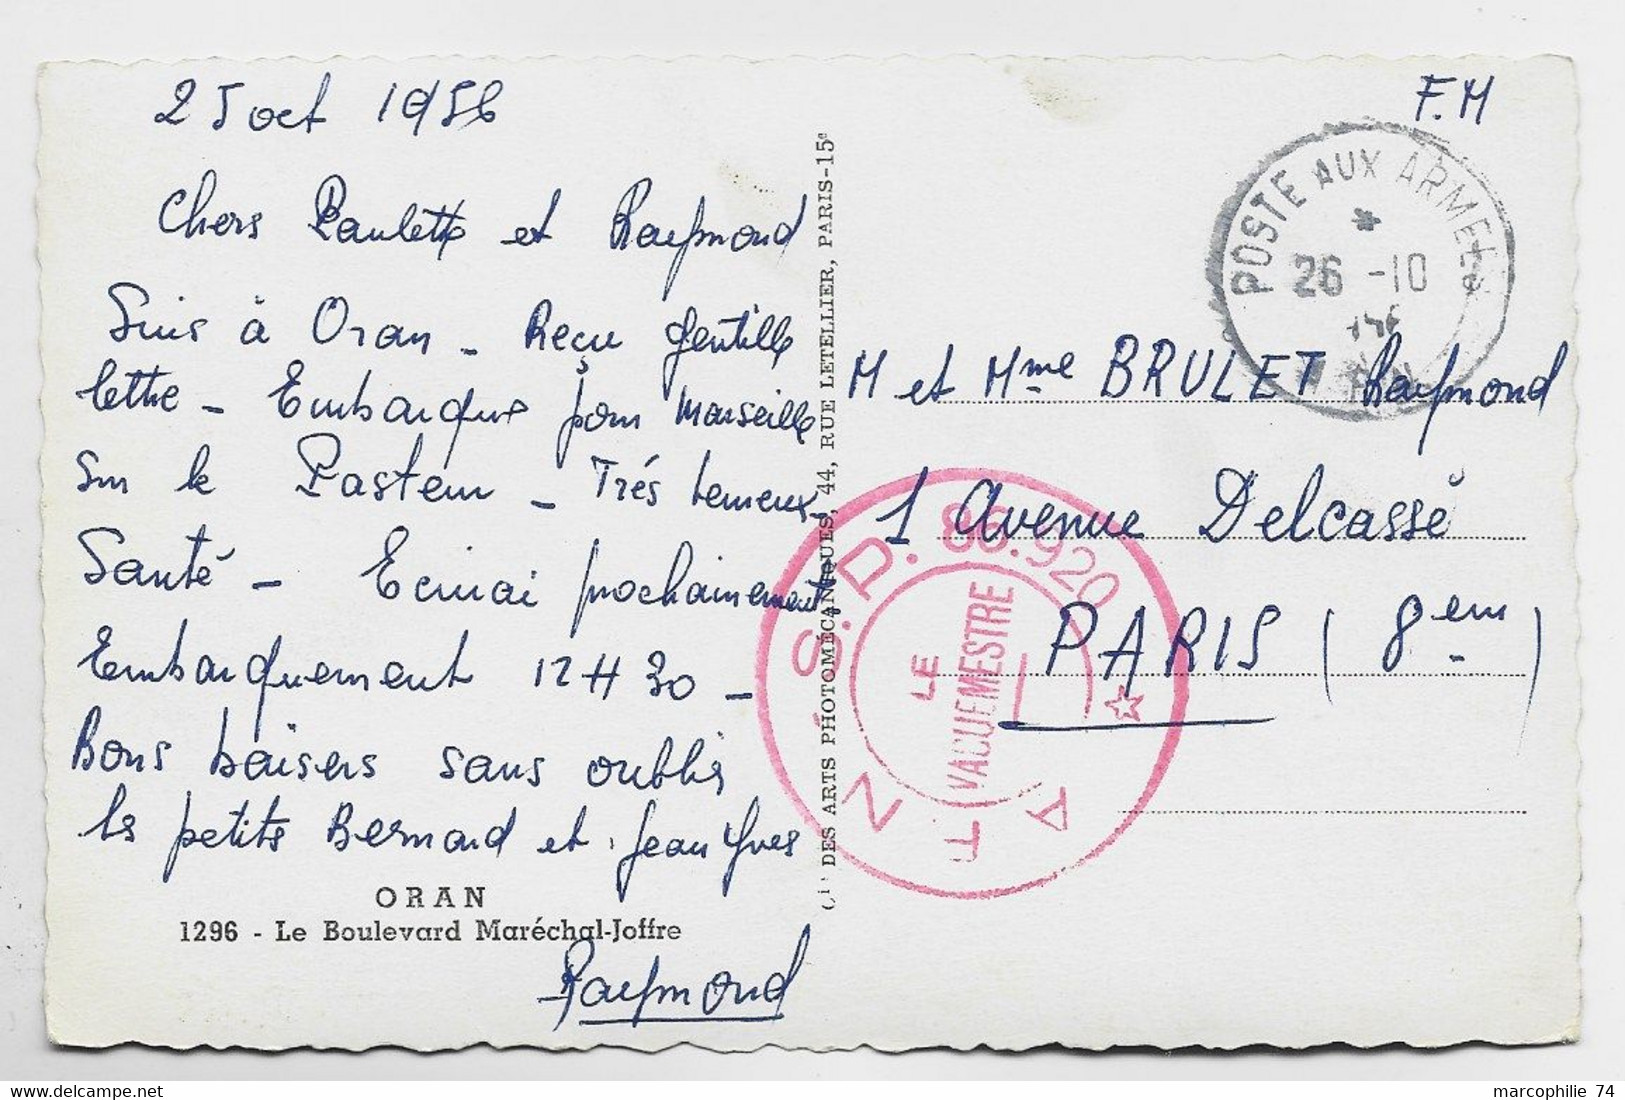 25 oct 1956
Chers Paulette et Raymond
Suis à Oran - Reçu gentille
lettre - Embarque pour Marseille
sur le Pasteur - Trés
Santé - Ecrirai prochainement
Embarquement 12H30 -
Bons baisers sans oublier
les petits Bernard et Jean Yves
ORAN
1296 - Le Boulevard Maréchal-Joffre
Raymond
Cie DES ARTS PHOTOMÉCANIQUES, 44, RUE LETELLIER, PARIS-15e
F.M
POSTE AUX ARMEES
26 -10
M et Mme BRULET Raymond
1 Avenue Delcassé
PARIS (8em)
S.D. 86.920
LE
VAGUEMESTRE
marcophilie 74